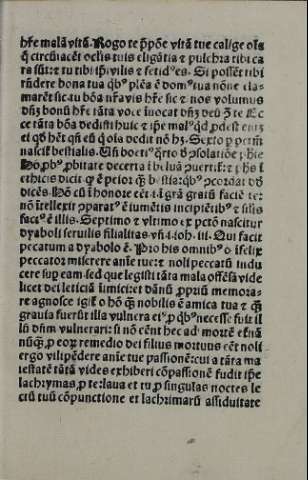 hr̄e malā vitā. Rogo te pp̄one vitā tue calige oīa
q̄ circūiacēt oclis tuis eligātia ⁊ pulchra tibi ca
ra sūt: ⁊ tu tibi ip̄i vilis ⁊ fetidꝰes. Si possēt tibi
rn̄dere bona tua qꝰ plēa ē domꝰ tua nōne cla⸗
marēt sic tu bōa nr̄a vis hr̄e sic ⁊ nos volumus
dn̄ʒ bonū hr̄e tāta voce iuocāt dn̄ʒ deū ʒ te Ec
ce tāta bōa dedisti huic ⁊ ip̄e malꝰ qd ꝓdest ei
ei qd h̄et qn̄ eū q oīa dedit nō hʒ. Sexto ꝑ pctm̄
nascit̄ bestialis. Un̄ boetiꝰ
ꝓbitate deserta i beluā
ethicis dicit ꝙ ē peior
dicēs. Hō cū i honore eēt
nō ītellexit ꝯparatꝰ ē iumētis īsipiētibꝰ ⁊ silis
facꝰ ē illis. Septimo ⁊ vltimo ex pctō nascitur
dyaboli seruilis filialitas vn̄. i. ioh. iii. Qui facit
peccatum a dyabolo ē. Pro his omnibꝰ o īfelix
peccator miserere aīe tue: ⁊ noli peccatū indu
cere sup eam. sed que legisti tāta mala offēsa vide
licet dei leticiā īimici: et dānū ꝓpriū memora⸗
re agnosce igit̄ o hō q̄ nobilis ē amica tua ⁊ q̄
grauia fuerūt illa vulnera ei
lū dn̄m vulnerari: si nō eēnt hec ad mortē et̄nā
nūq̄ ꝓ eoꝝ remedio dei filius mortuus eēt noli
ergo vilipēdere aīe tue passionē: cui a tāta ma
iestatē tātā vides exhiberi cōpassionē fudit ip̄e
lachrymas ꝓ te: laua et tu ꝑ singulas noctes le
ctū tuū cōpunctione et lachrimarū assiduitate